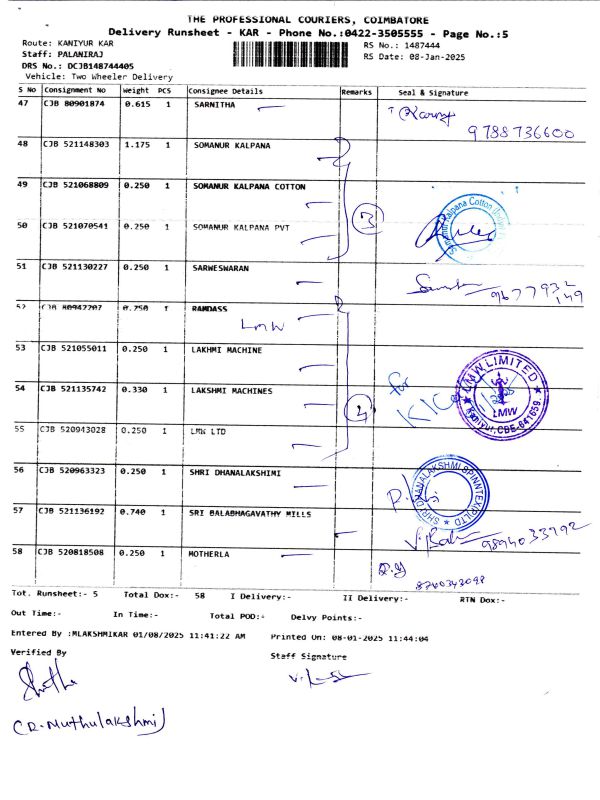 THE PROFESSIONAL COURIERS, COIMBATORE
Delivery Runsheet - KAR - Phone No.:0422-3505555 - Page No.:5
Route: KANIYUR KAR
RS No.: 1487444
Staff: PALANIRAJ
RS Date: 08-Jan-2025
DRS No.: DCJB148744405
Vehicle: Two Wheeler Delivery
S No Consignment No Weight PCS Consignee Details Remarks Seal & Signature
47 CJB 80901874 0.615 1 SARNITHA
9788736600
48 CJB 521148303 1.175 1 SOMANUR KALPANA
49 CJB 521068809 0.250 1 SOMANUR KALPANA COTTON
3
50 CJB 521070541 0.250 1 SOMANUR KALPANA PVT
51 CJB 521130227 0.250 1 SARWESWARAN
9677932
149
52 CJB 80942207 0.250 1 RAMDASS
LMW
53 CJB 521055011 0.250 1 LAKHMI MACHINE
LMW LIMITED
LMW
Kaniyur, CBE-641659.
for
54 CJB 521135742 0.330 1 LAKSHMI MACHINES
4
55 CJB 520943028 0.250 1 LMW LTD
56 CJB 520963323 0.250 1 SHRI DHANALAKSHIMI
SHRI DHANALAKSHMI SPINNTEX (P) LTD
57 CJB 521136192 0.740 1 SRI BALABHAGAVATHY MILLS
9894033792
58 CJB 520818508 0.250 1 MOTHERLA
8760343098
Tot. Runsheet:- 5 Total Dox:- 58 I Delivery:- II Delivery:- RTN Dox:-
Out Time:- In Time:- Total POD:- Delvy Points:-
Entered By :MLAKSHMIKAR 01/08/2025 11:41:22 AM Printed On: 08-01-2025 11:44:04
Verified By
Staff Signature
(R. Muthulakshmi)